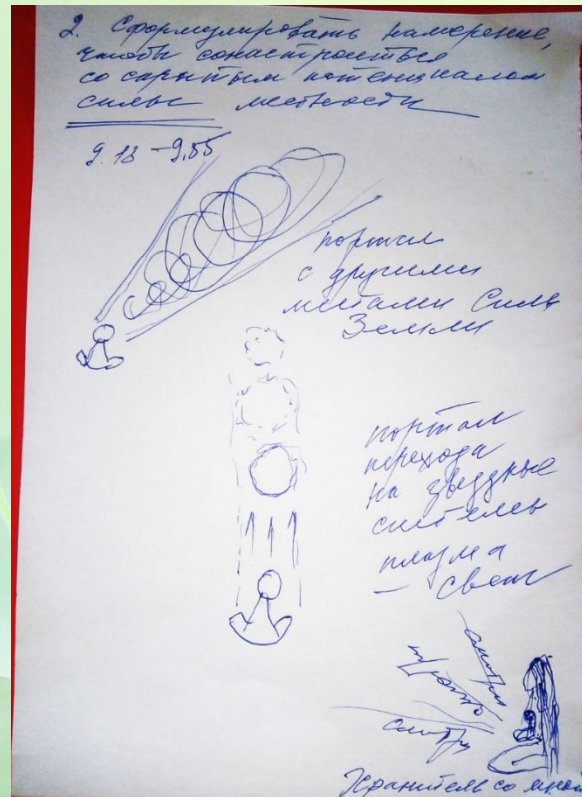 2. Сформулировать намерение,
чтобы сонастроиться
со скрытым потенциалом
силы местности
9.18 - 9,55
портал
с другими
местами Силы
Земли
портал
перехода
на звездные
системы
плазма
- свет
смотри
прямо
смотри
Хранитель со мной